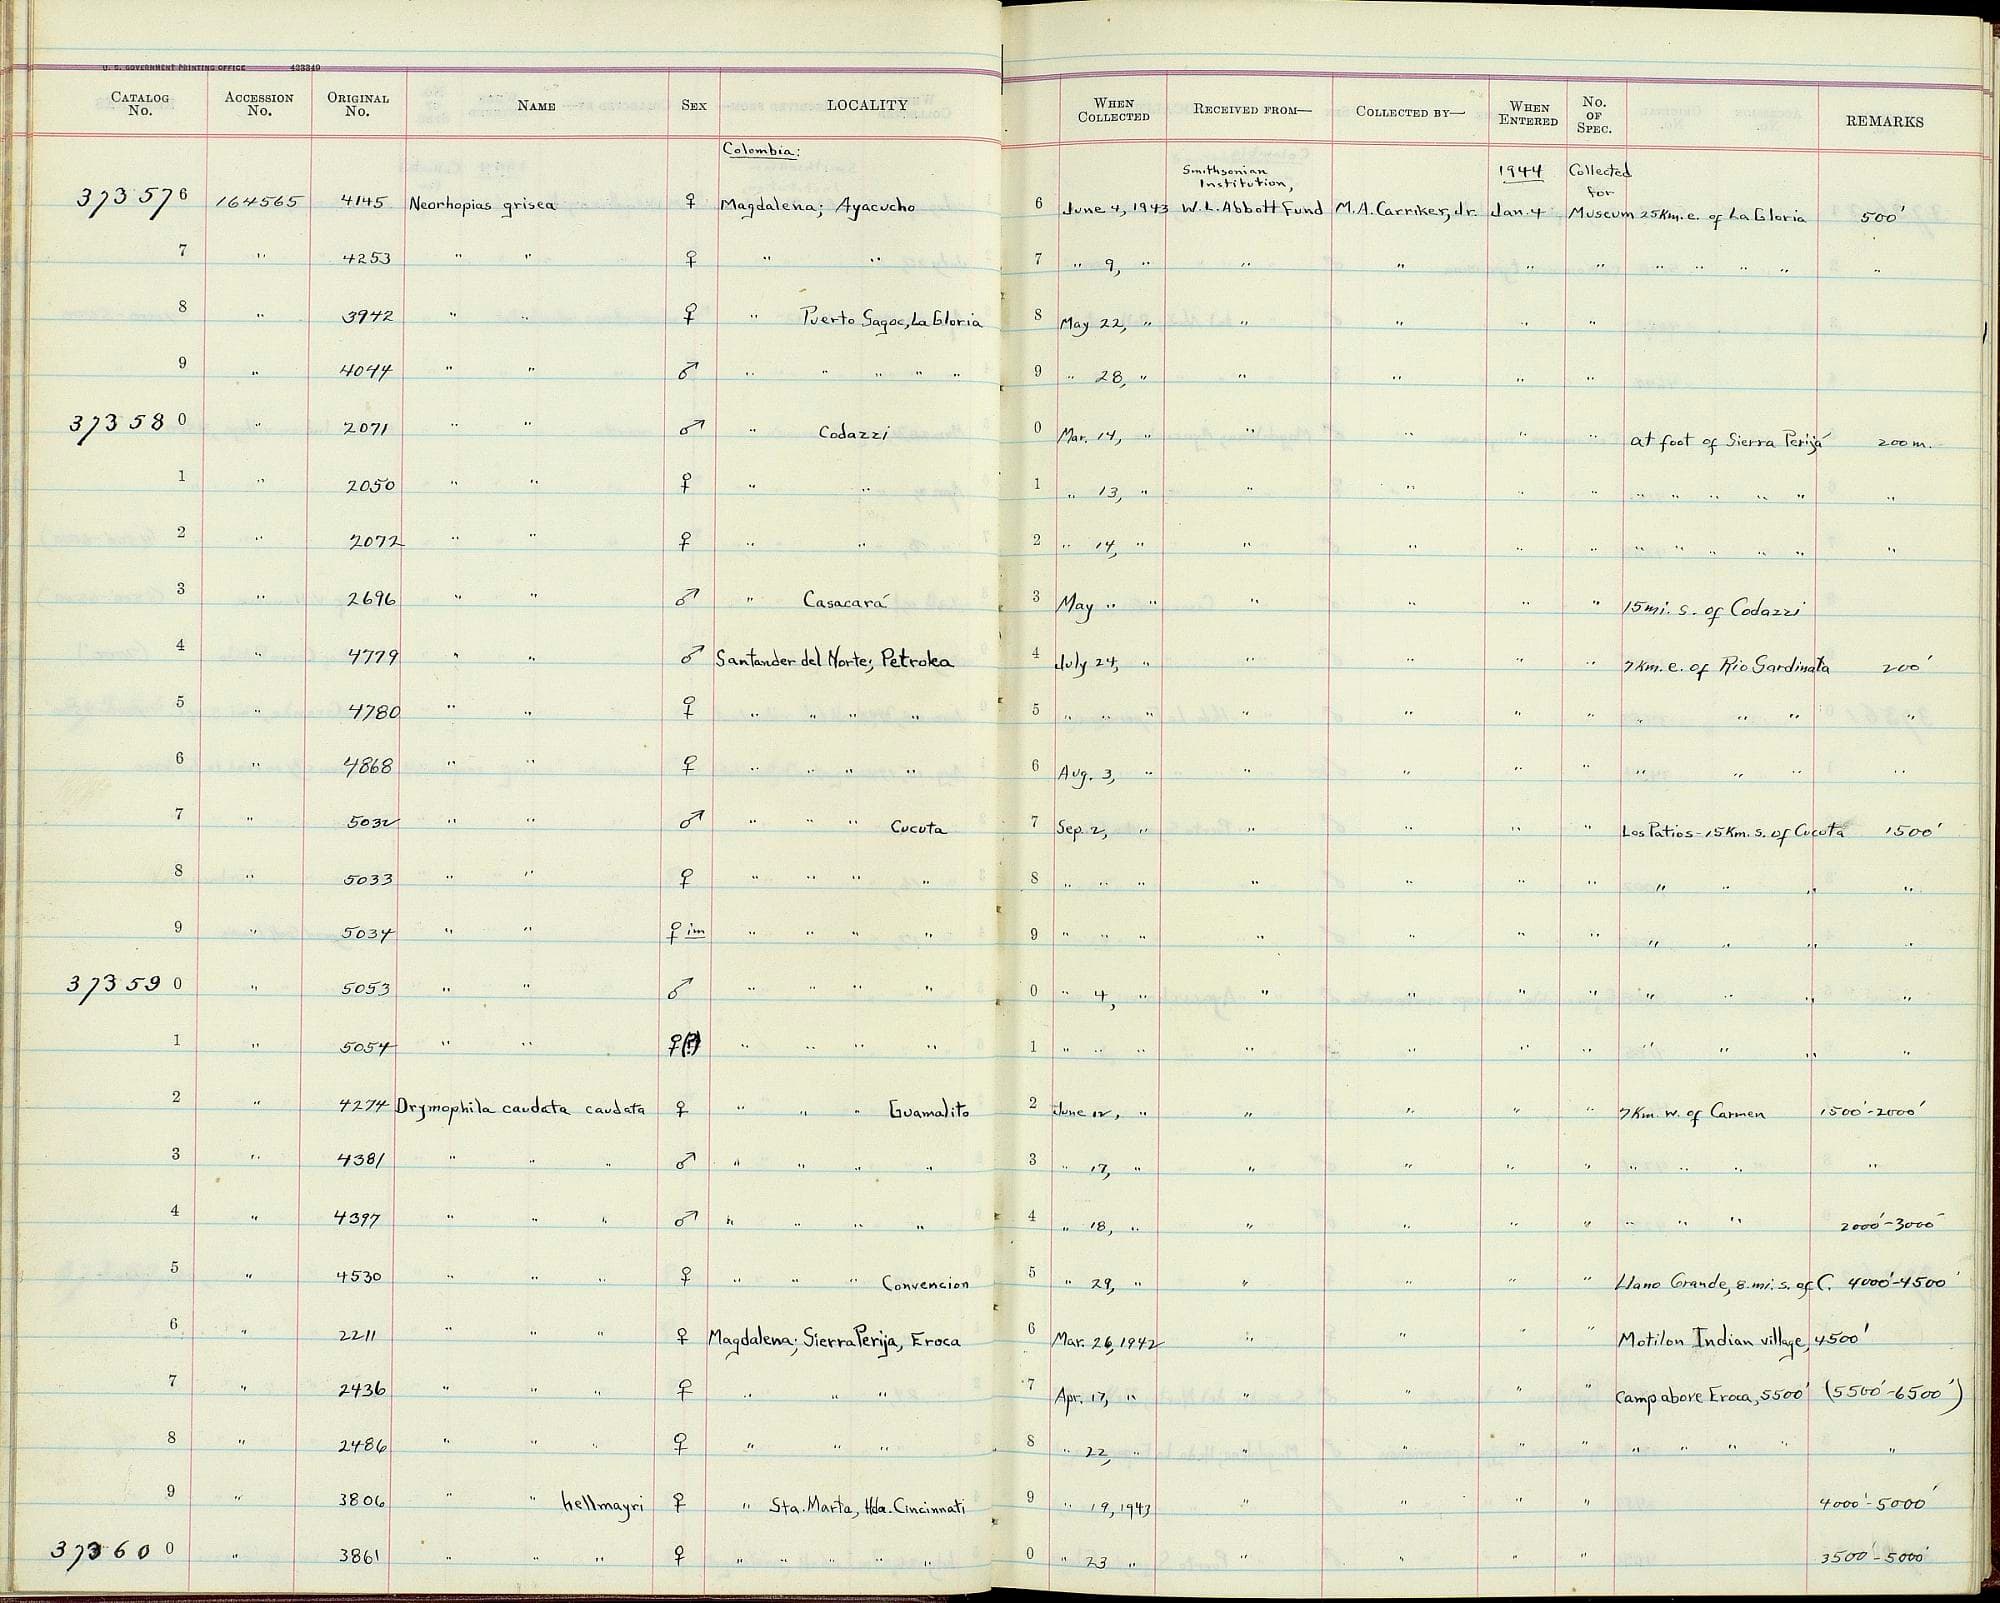 U. S. GOVERNMENT PRINTING OFFICE 423349
CATALOG No. ACCESSION No. ORIGINAL No. NAME SEX LOCALITY WHEN COLLECTED RECEIVED FROM— COLLECTED BY— WHEN ENTERED No. OF SPEC. REMARKS
Colombia: Smithsonian Institution, 1944 Collected for
373576 164565 4145 Neorhopias grisea ♀ Magdalena; Ayacucho 6 June 4, 1943 W.L. Abbott Fund M.A. Carriker, Jr. Jan. 4 Museum 25 Km. e. of La Gloria 500'
7 " 4253 " " ♀ " " 7 " 9, " " " " " " " " " "
8 " 3942 " " ♀ " Puerto Sagoc, La Gloria 8 May 22, " " " " "
9 " 4044 " " ♂ " " " " " 9 " 28, " " " " "
373580 " 2071 " " ♂ " Codazzi 0 Mar. 14, " " " " " at foot of Sierra Perijá 200 m.
1 " 2050 " " ♀ " " 1 " 13, " " " " " " " " " " "
2 " 2072 " " ♀ " " 2 " 14, " " " " " " " " " " "
3 " 2696 " " ♂ " Casacará 3 May " " " " " " 15 mi. s. of Codazzi
4 " 4779 " " ♂ Santander del Norte; Petrolea 4 July 24, " " " " " 7 Km. e. of Rio Sardinata 200'
5 " 4780 " " ♀ " " " " 5 " " " " " " " " " " "
6 " 4868 " " ♀ " " " " 6 Aug. 3, " " " " " " " " "
7 " 5032 " " ♂ " " " Cucuta 7 Sep. 2, " " " " " Los Patios - 15 Km. s. of Cucuta 1500'
8 " 5033 " " ♀ " " " " 8 " " " " " " " " " " "
9 " 5034 " " ♀ im " " " " 9 " " " " " " " " " " "
373590 " 5053 " " ♂ " " " " 0 " 4, " " " " " " " " "
1 " 5054 " " ♀(?) " " " " 1 " " " " " " " " " " "
2 " 4274 Drymophila caudata caudata ♀ " " " Guamalito 2 June 12, " " " " " 7 Km. w. of Carmen 1500'-2000'
3 " 4381 " " " ♂ " " " " 3 " 17, " " " " " " " " " "
4 " 4397 " " " ♂ " " " " 4 " 18, " " " " " " " " 2000'-3000'
5 " 4530 " " " ♀ " " " Convencion 5 " 29, " " " " " Llano Grande, 8 mi. s. of C. 4000'-4500'
6 " 2211 " " " ♀ Magdalena; Sierra Perija, Eroca 6 Mar. 26, 1942 " " " " Motilon Indian village, 4500'
7 " 2436 " " " ♀ " " " 7 Apr. 17, " " " " " Camp above Eroca, 5500' (5500'-6500')
8 " 2486 " " " ♀ " " " 8 " 22, " " " " " " " " " "
9 " 3806 " " hellmayri ♀ " Sta. Marta, Hda. Cincinnati 9 " 19, 1943 " " " " 4000'-5000'
373600 " 3861 " " " ♀ " " " " " 0 " 23 " " " " " 3500'-5000'